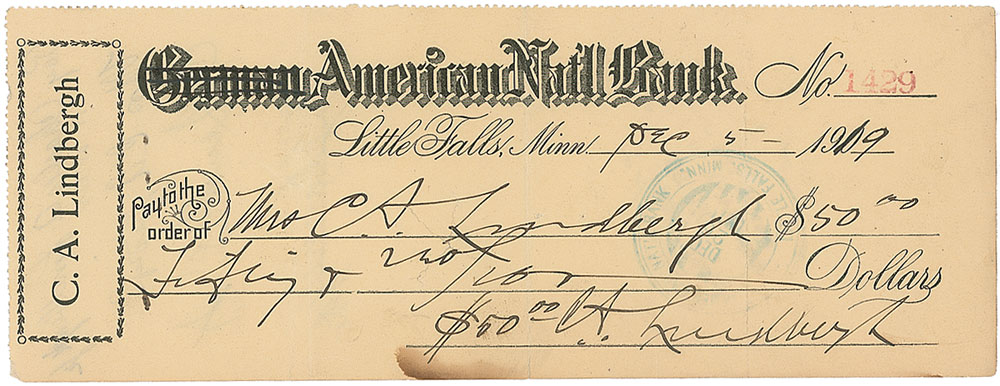 C. A. Lindbergh
German American Nat'l Bank.
No. 1429
Little Falls, Minn. Dec 5 - 1919
Pay to the order of Mrs C. A. Lindbergh $50.00
Fifty & no/100 Dollars
$50.00 C. A. Lindbergh
FALLS, MINN.